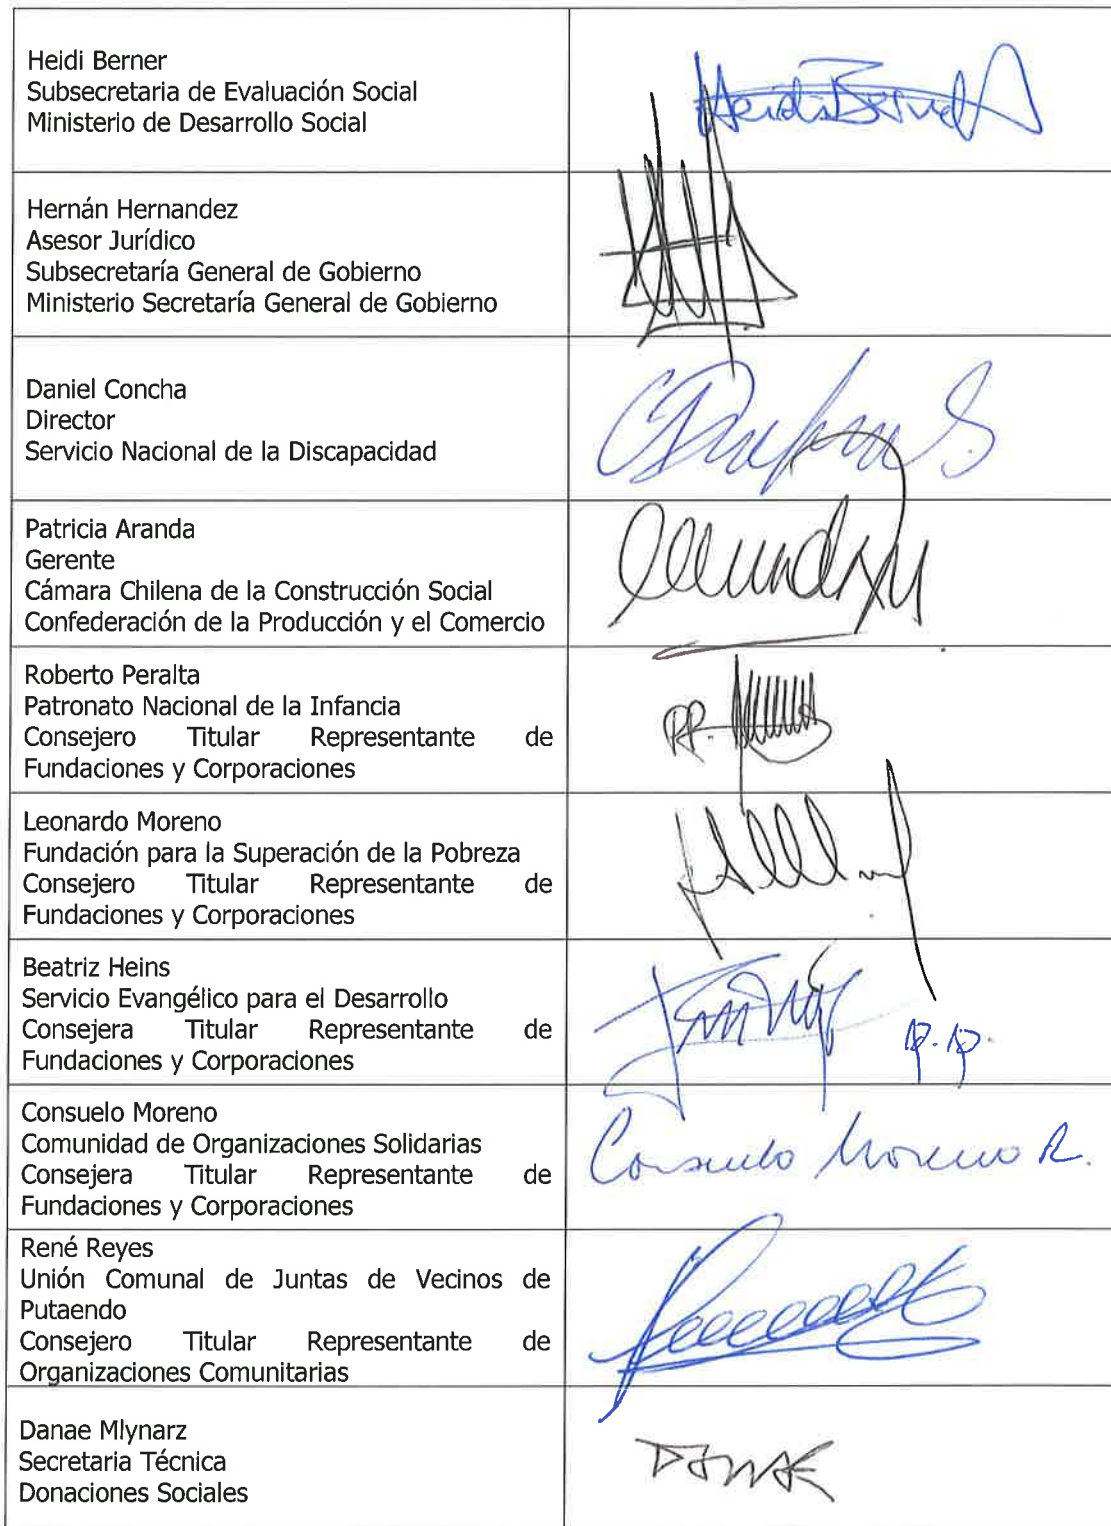 Heidi Berner
Subsecretaria de Evaluación Social
Ministerio de Desarrollo Social
Heidi Berner
Hernán Hernandez
Asesor Jurídico
Subsecretaría General de Gobierno
Ministerio Secretaría General de Gobierno
Daniel Concha
Director
Servicio Nacional de la Discapacidad
Patricia Aranda
Gerente
Cámara Chilena de la Construcción Social
Confederación de la Producción y el Comercio
Roberto Peralta
Patronato Nacional de la Infancia
Consejero Titular Representante de
Fundaciones y Corporaciones
Leonardo Moreno
Fundación para la Superación de la Pobreza
Consejero Titular Representante de
Fundaciones y Corporaciones
Beatriz Heins
Servicio Evangélico para el Desarrollo
Consejera Titular Representante de
Fundaciones y Corporaciones
p.p.
Consuelo Moreno
Comunidad de Organizaciones Solidarias
Consejera Titular Representante de
Fundaciones y Corporaciones
Consuelo Moreno R.
René Reyes
Unión Comunal de Juntas de Vecinos de
Putaendo
Consejero Titular Representante de
Organizaciones Comunitarias
Danae Mlynarz
Secretaria Técnica
Donaciones Sociales
DANAE